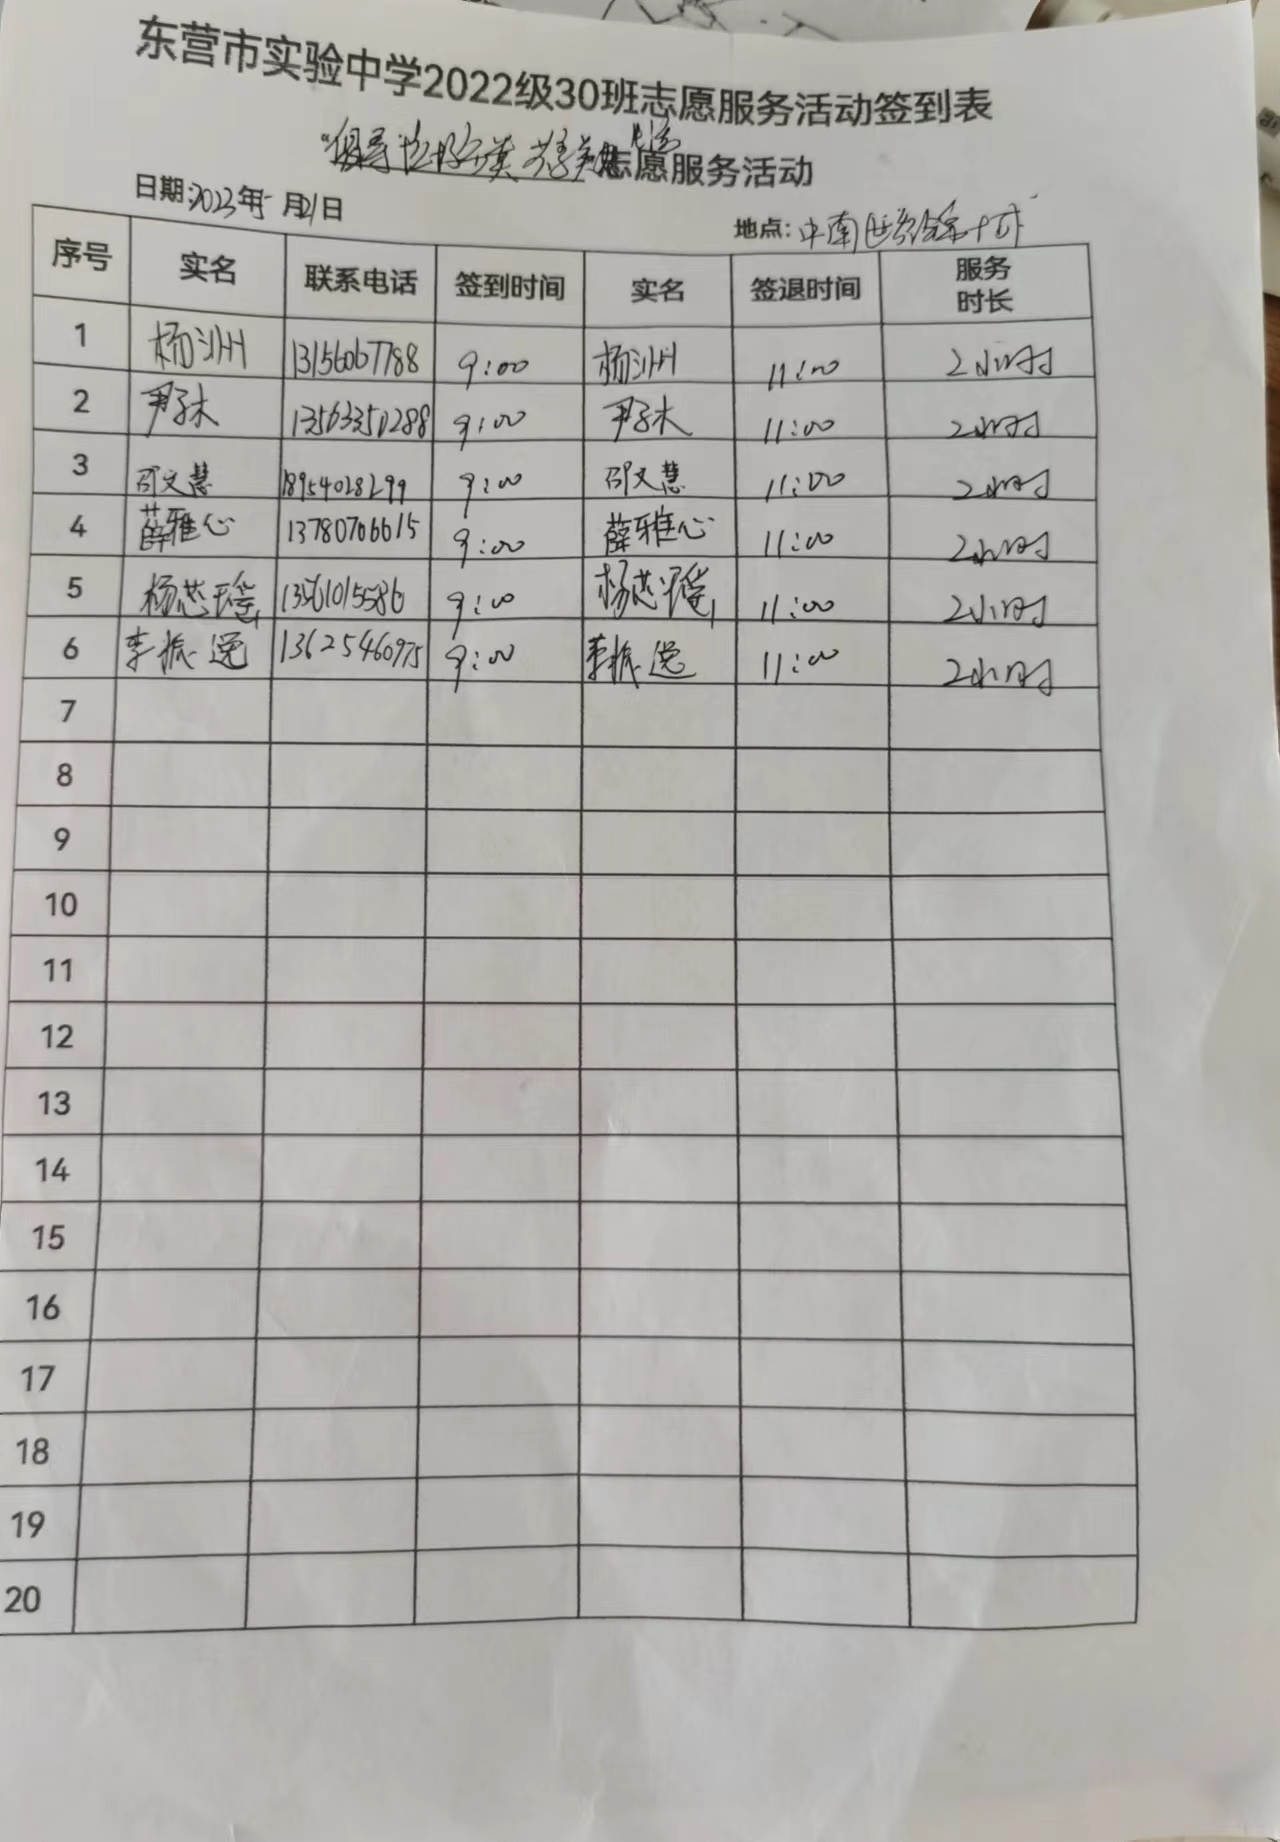 东营市实验中学2022级30班志愿服务活动签到表
志愿服务活动
日期:2023年 月21日
地点:中南
序号 实名 联系电话 签到时间 实名 签退时间 服务时长
1 杨 13156067788 9:00 杨 11:00 2小时
2 尹子木 13563350288 9:00 尹子木 11:00 2小时
3 邵文慧 18954028299 9:00 邵文慧 11:00 2小时
4 薛雅心 13780706615 9:00 薛雅心 11:00 2小时
5 杨芯瑶 13561015586 9:00 杨芯瑶 11:00 2小时
6 李振逸 13625460975 9:00 李振逸 11:00 2小时
7
8
9
10
11
12
13
14
15
16
17
18
19
20